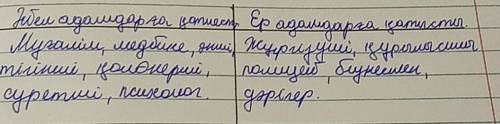 Әйел адамдарға қатысты Ер адамдарға қатысты.
Мұғалім, медбике, әнші, Жүргізуші, құрылысшы
тігінші, қолөнерші, полицей, бизнесмен,
суретші, психолог. дәрігер.